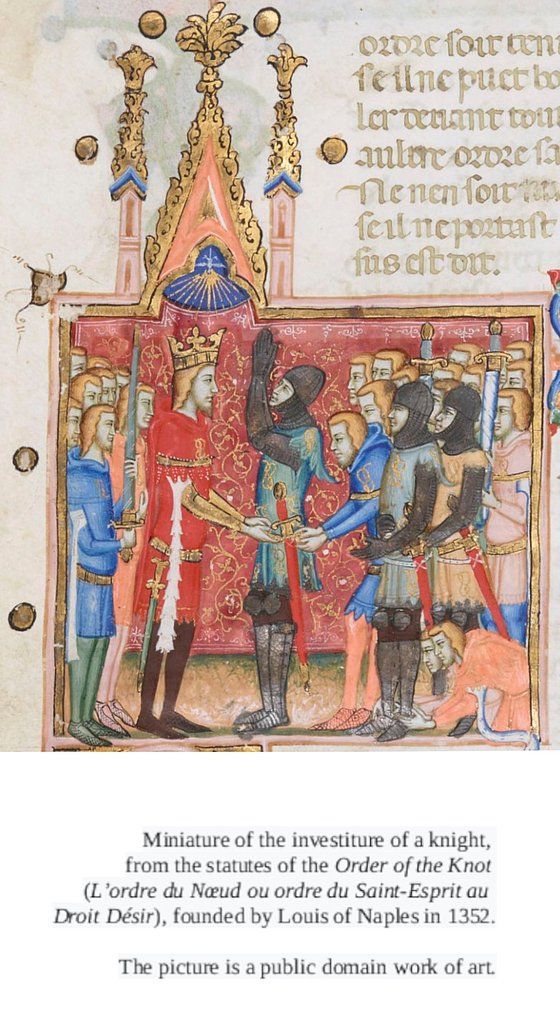 ordre soit ten
se il ne puet
ler devant
aultre ordre sa
Ne nen soit
se il ne portast
sus est dit.
Miniature of the investiture of a knight,
from the statutes of the Order of the Knot
(L’ordre du Nœud ou ordre du Saint-Esprit au
Droit Désir), founded by Louis of Naples in 1352.
The picture is a public domain work of art.